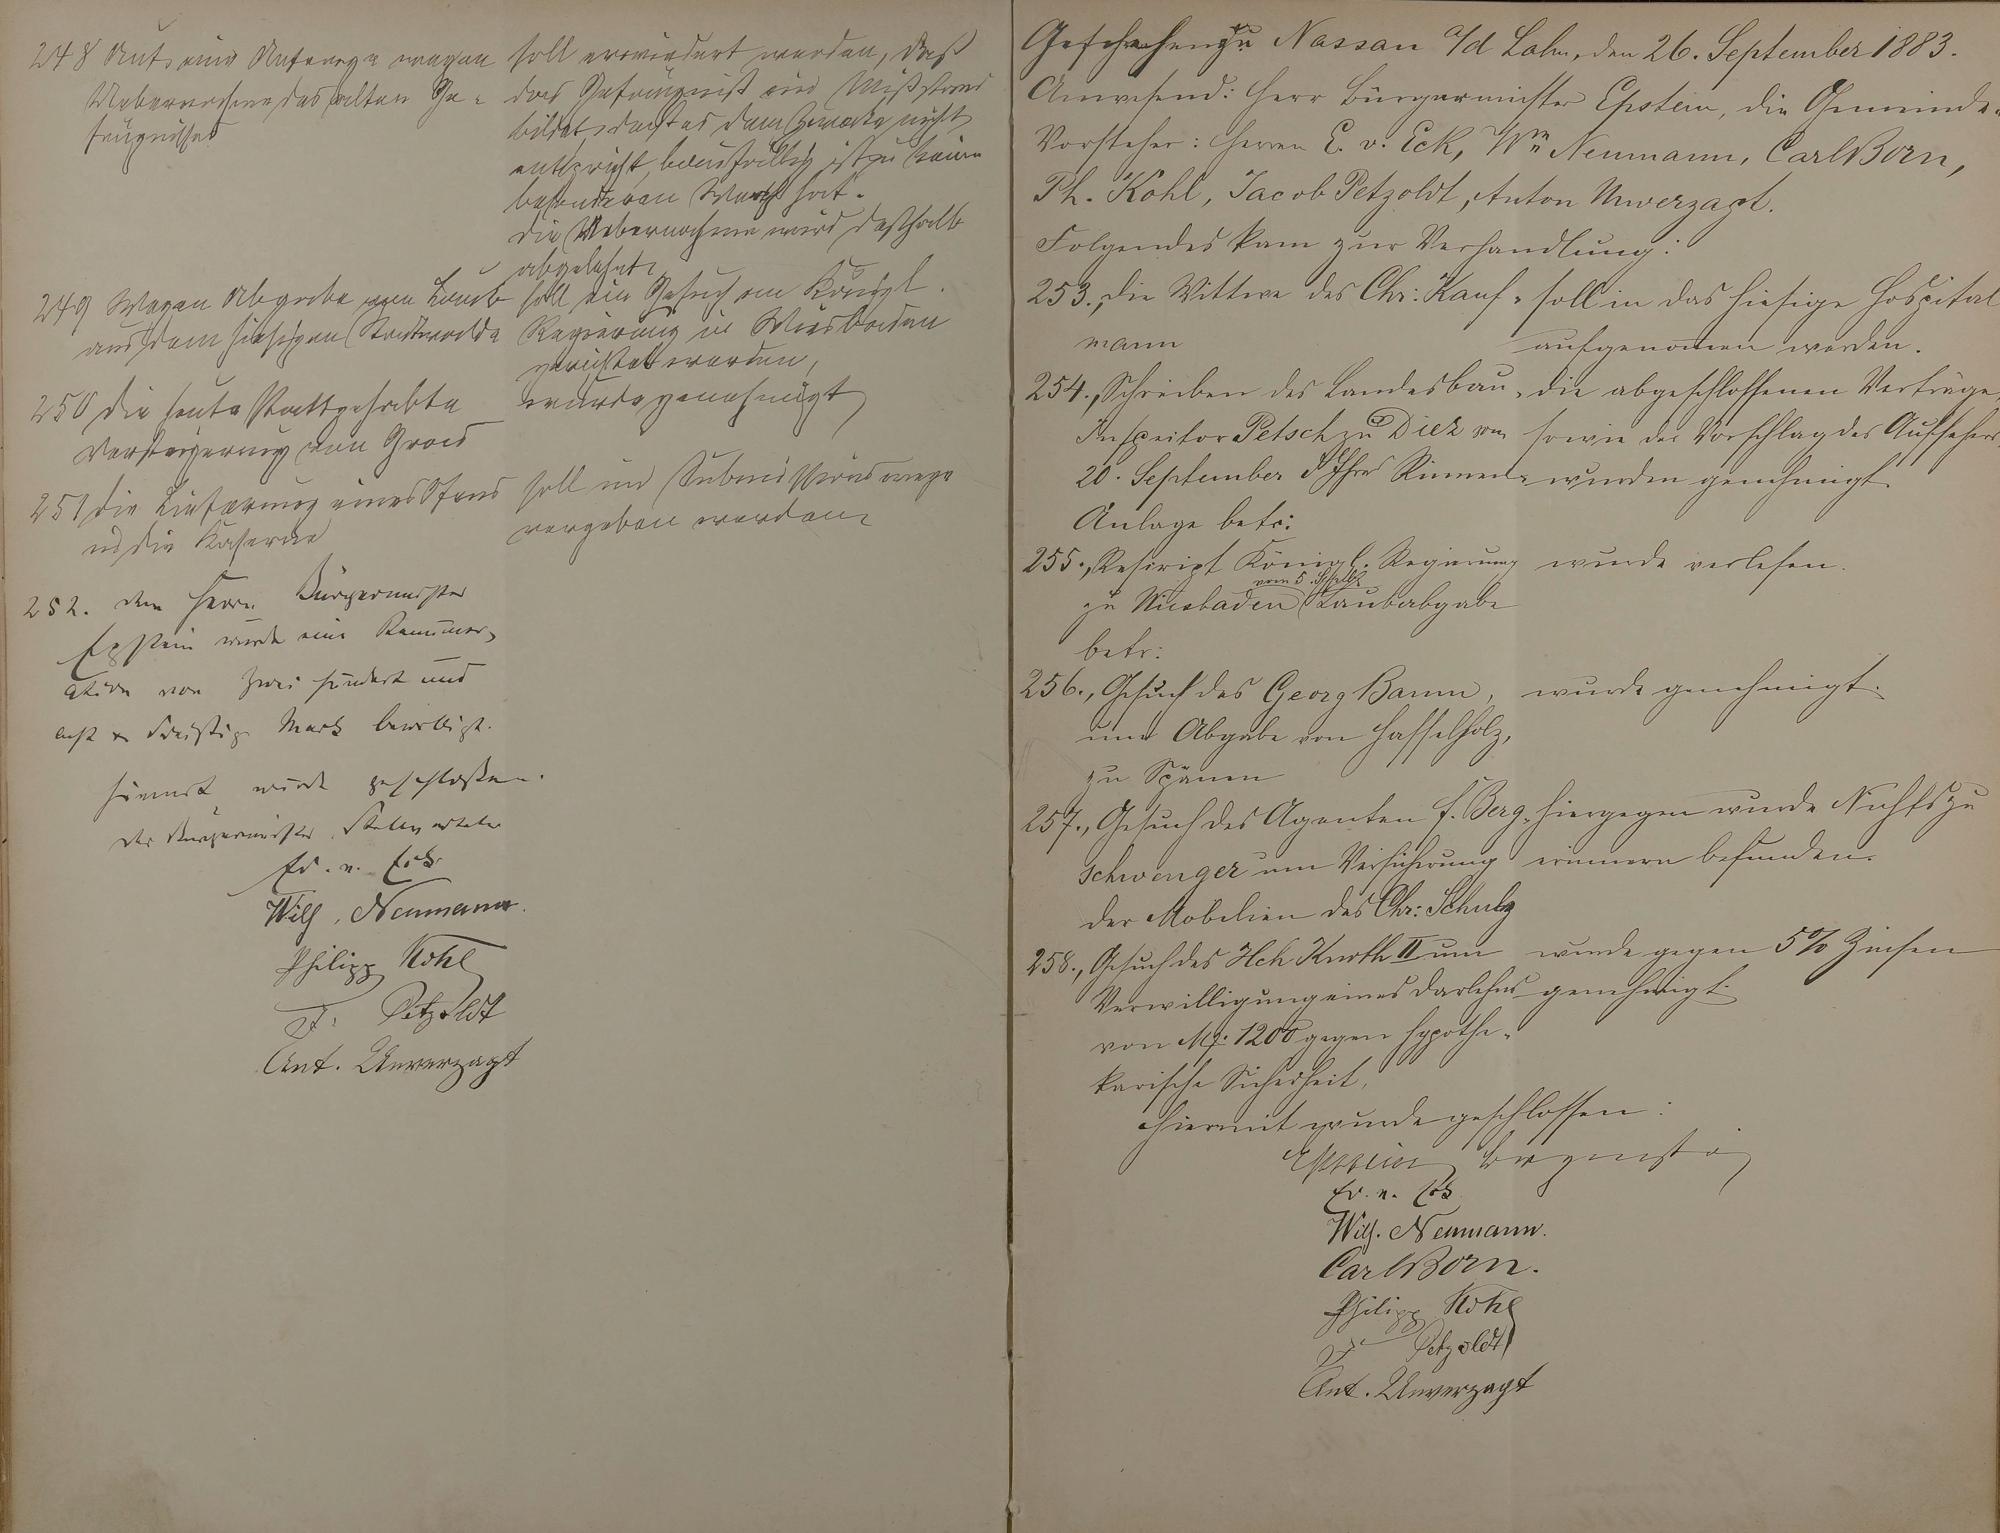 248 Auf eine Anfrage wegen
Uebernahme des alten Ge-
fängnisses
soll erwiedert werden, daß
das Gefängniß ein Mißstand
bildet, daß es dem Zwecke nicht
entspricht, baufällig ist u keinen
besonderen Werth hat.
die Uebernahme wird deßhalb
abgelehnt.
249 Wegen Abgabe von Laub
aus dem hiesigen Stadtwalde
soll ein Gesuch an Königl.
Regierung in Wiesbaden
gerichtet werden,
250 die heute stattgehabte
Versteigerung von Gras
wurde genehmigt
251 die Lieferung eines Ofens
in die Kaserne
soll im Submissionswege
vergeben werden
252. dem Herrn Bürgermeister
Epstein wurde eine Remuner-
ation von zwei hundert und
acht u dreißig Mark bewilligt.
hiermit wurde geschlossen.
der Bürgermeister Stellvertreter
Ed. v. Eck
Wilh. Neumann.
Philipp Kohl
J. Petzoldt
Ant. Unverzagt
Geschehen zu Nassau a/d Lahn, den 26. September 1883.
Anwesend: Herr Bürgermeister Epstein, die Gemeinde-
Vorsteher: Herren E. v. Eck, Wm Neumann, Carl Born,
Ph. Kohl, Jacob Petzoldt, Anton Unverzagt.
Folgendes kam zur Verhandlung:
253., die Wittwe des Chr: Kauf-
mann
soll in das hiesige Hospital
aufgenomen werden.
254., Schreiben des Landesbau-
Inspektor Petsch zu Diez vom
20. September d Jhrs Rinnen-
Anlage betr:
die abgeschlossenen Verträge,
sowie der Vorschlag des Aufsehers
wurden genehmigt.
255., Rescript Königl. Regierung
vom 5. ejusd.
zu Wiesbaden Laubabgabe
betr:
wurde verlesen.
256., Gesuch des Georg Baum,
um Abgabe von Hasselholz,
zu Spänen
wurde genehmigt.
257., Gesuch des Agenten f. Berg-
schwenger um Versicherung
der Mobilien des Chr: Schulz
hiergegen wurde Nichts zu
erinnern befunden.
258., Gesuch des Hch Knoth II um
Verwilligung eines Darlehns
von M. 1200 gegen hypothe-
karische Sicherheit,
wurde gegen 5% Zinsen
genehmigt.
hiermit wurde geschlossen:
Epstein Bürgermstr
Ed. v. Eck
Wilh. Neumann.
Carl Born.
Philipp Kohl
J Petzoldt
Ant. Unverzagt